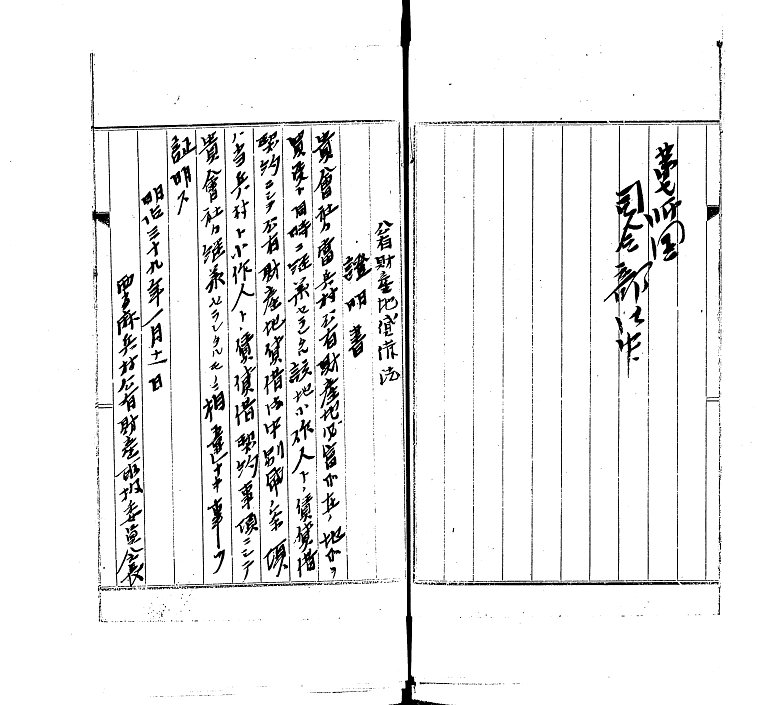 第七師団
司令部以外
公有財産地貸借法
證明書
貴會社ハ當兵村公有財産地
買受ト同時ニ継承セラレタル該地小作人トノ賃貸借
契約ニシテ公有財産地貸借法中別冊ノ条項
ハ当兵村ト小作人トノ賃貸借契約事項ニシテ
貴會社ハ継承セラレタルモノニ相違ナキ事ヲ
証明ス
明治三十九年一月十一日
兵村公有財産取扱委員会長